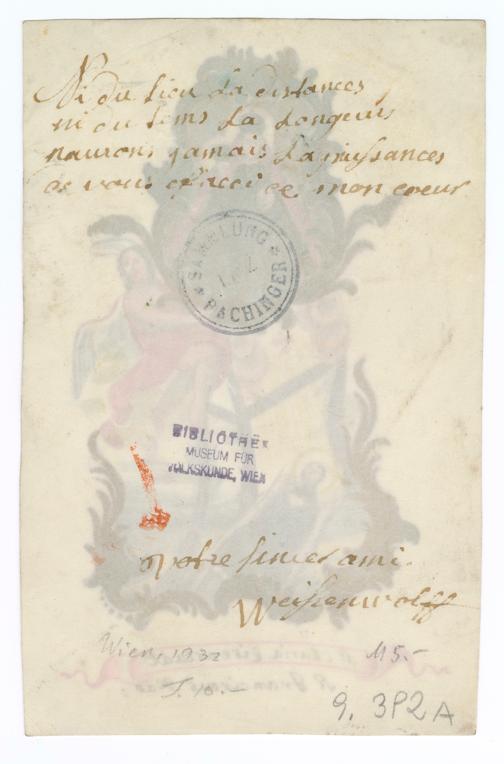 Ni du lieu La distances,
ni du tems La Longeurs
naurons jamais La puissances
de vous effacer de mon coeur
SAMMLUNG PACHINGER
BIBLIOTHEK
MUSEUM FÜR
VOLKSKUNDE, WIEN
votre sincer ami.
Weissenwolff
Wien, 1932 M5.-
9. 3P2A